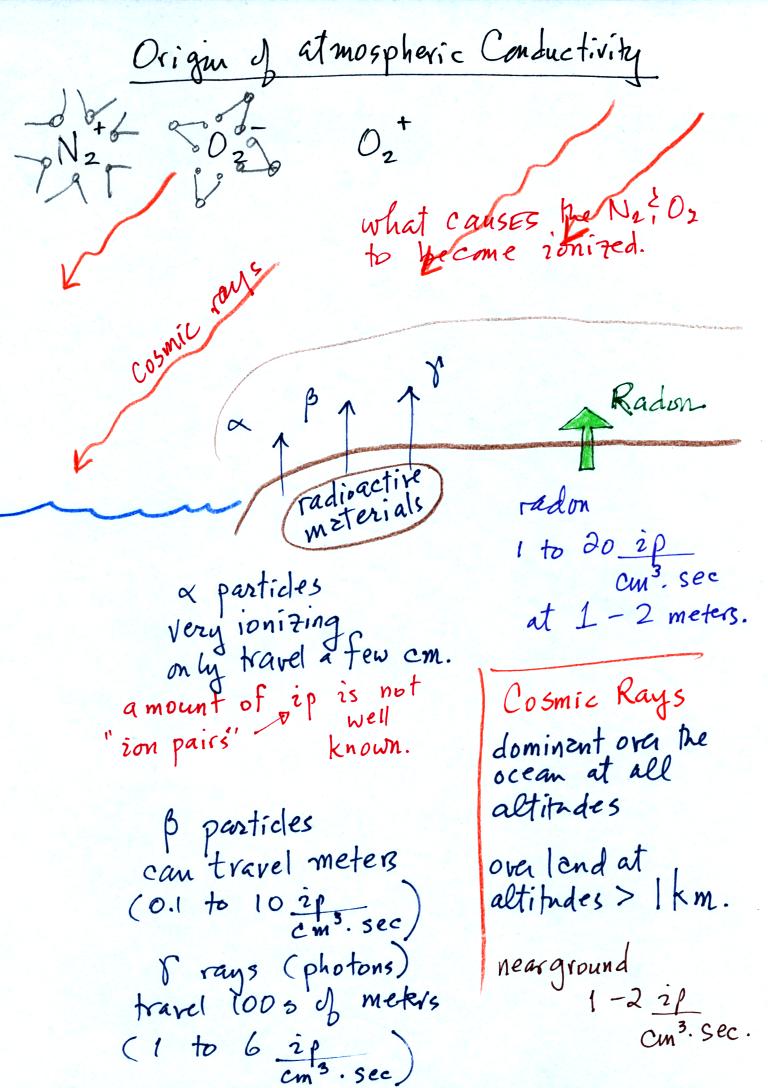 Origin of atmospheric Conductivity
N2+ O2- O2+
what causes the N2 & O2
to become ionized.
cosmic rays
α β γ
Radon
radioactive
materials
radon
1 to 20 ip/cm³·sec
at 1-2 meters.
α particles
very ionizing
only travel a few cm.
amount of ip is not
"ion pairs" → well
known.
β particles
can travel meters
(0.1 to 10 ip/cm³·sec)
γ rays (photons)
travel 100s of meters
(1 to 6 ip/cm³·sec)
Cosmic Rays
dominant over the
ocean at all
altitudes
over land at
altitudes > 1 km.
near ground
1-2 ip/cm³·sec.